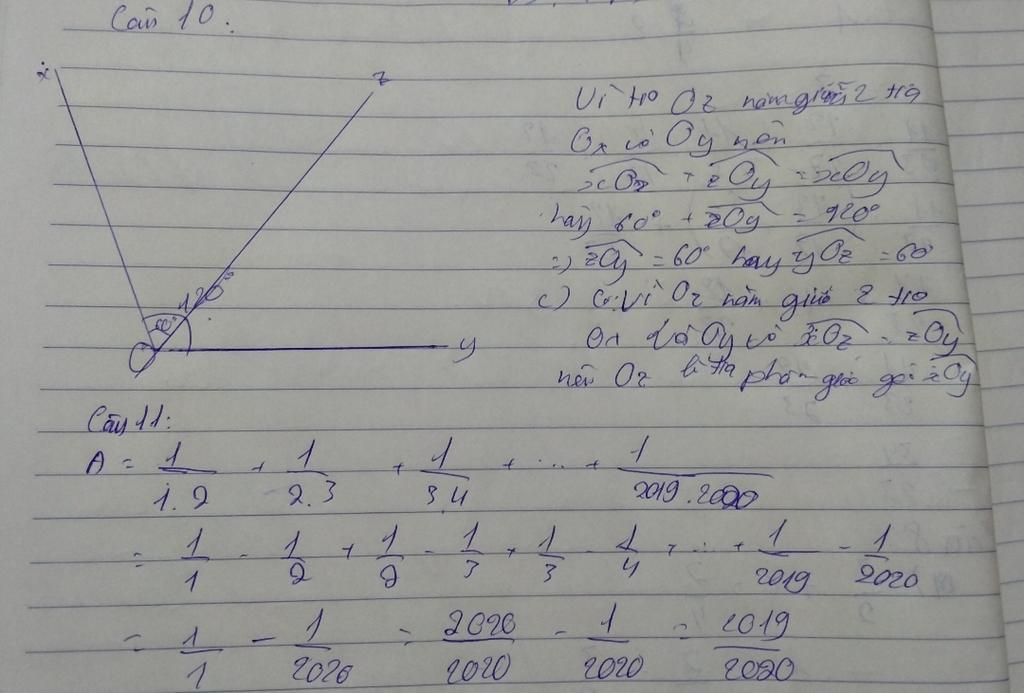 Câu 10:
x z
120°
60°
O y
Vì tia Oz nằm giữa 2 tia
Ox và Oy nên
xOz + zOy = xOy
hay 60° + zOy = 120°
=> zOy = 60° hay yOz = 60°
c) Vì Oz nằm giữa 2 tia
Ox và Oy và xOz = zOy
nên Oz là tia phân giác góc xOy
Câu 11:
A = 1/1.2 + 1/2.3 + 1/3.4 + ... + 1/2019.2020
= 1/1 - 1/2 + 1/2 - 1/3 + 1/3 - 1/4 + ... + 1/2019 - 1/2020
= 1/1 - 1/2020 = 2020/2020 - 1/2020 = 2019/2020